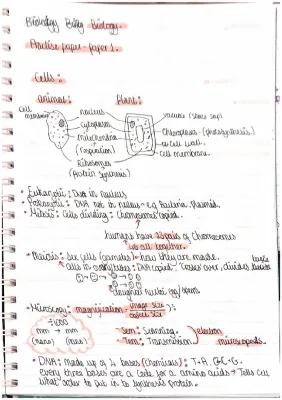 Biology Bitty Biology.
Practise paper - paper 1.
Cells :-
animal:
Plant:
cell membrane
nucleus
cytoplasm
mitochondria
(respiration)
Ribosomes
(Protein Synthesis)
vacuole (stores sap)
Chloroplasts - (photosynthesis)
cell wall.
cell membrane.
• Eukaryotic: DNA in nucleus
• Prokaryotic: DNA not in nucleus - e.g. Bacteria, plasmid.
• Mitosis: Cells dividing: chromosomes copied.
humans have 23 pairs of chromosomes
46 all together.
• Meiosis: Sex cells (gametes) - how they are made.
DNA copied - crosses over, divides twice
nuclei egg/sperm
• Microscopy: magnification image size
object size
mm → mm
Sem: Scanning electron
Tem: Transmission microscopes.
• DNA: Made up of 4 bases (chemicals): T-A. C-G.
every three bases are a code for a amino acids → Tells cell
what order to put in to synthesis protein.